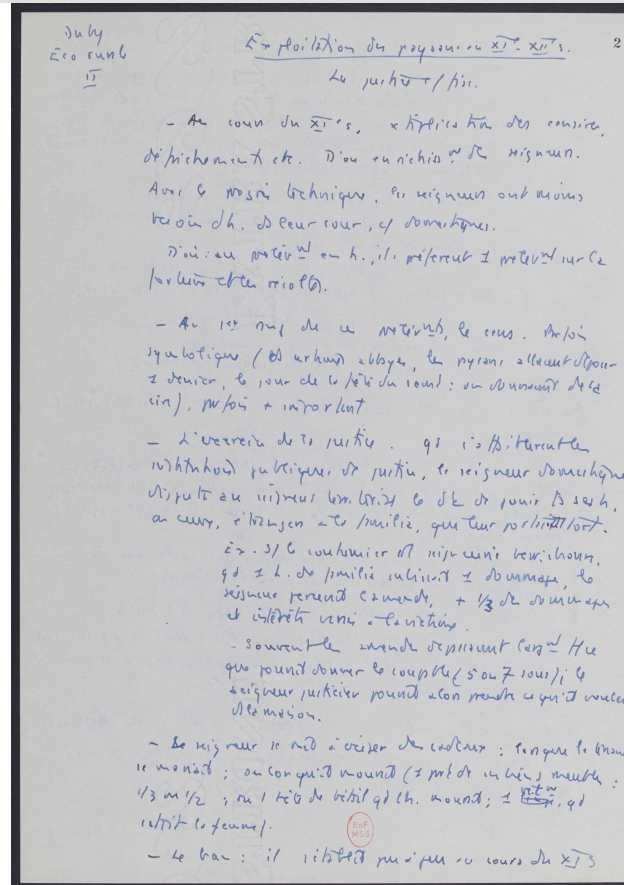 Duby
Eco rurale
II
2
Exploitation des paysans au XIe-XIIe s.
La justice / fisc.
– Au cours du XIe s, x tiplication des
défrichements etc. D'où enrichisst des seigneurs.
Avec le progrès technique, les seigneurs ont moins
besoin d'h. ds leur cour, c/ domestiques.
D'où : au prélèvt en h., ils préfèrent 1 prélèvt sur la
et les récoltes.
– Au 1er rang de ces prélèvts, le cens. Parfois
symbolique (ds abbayes, les paysans allaient déposer
1 denier, le jour de la fête du saint : ou donnaient de la
cire), parfois + important
– L'exercice de la justice. qd s'effritèrent les
institutions publiques de justice, le seigneur domestique
disputa au seigneur le dt de punir
ou ceux, étrangers à la familia, qui leur tort.
Ex. s/ le coutumier seigneurie berrichonne,
qd 1 h. de familia subissait 1 dommage, le
seigneur percevait l'amende, + 1/3 des dommages
et intérêts versés à la victime.
– Souvent les amendes dépassaient l'argt
que pouvait donner le coupable (5 ou 7 sous) ; le
seigneur justicier pouvait alors prendre ce qu'il voulait
ds la maison.
– Le seigneur se mit à exiger des cadeaux : lorsque le
se mariait ; ou lorsqu'il mourait (1 part de ses biens meubles :
1/3 ou 1/2 ; ou 1 tête de bétail qd l'h. mourait ; 1 qd
c'était la femme).
BnF
MSS
– Le ban : il s'établit peu à peu au cours du XIe s